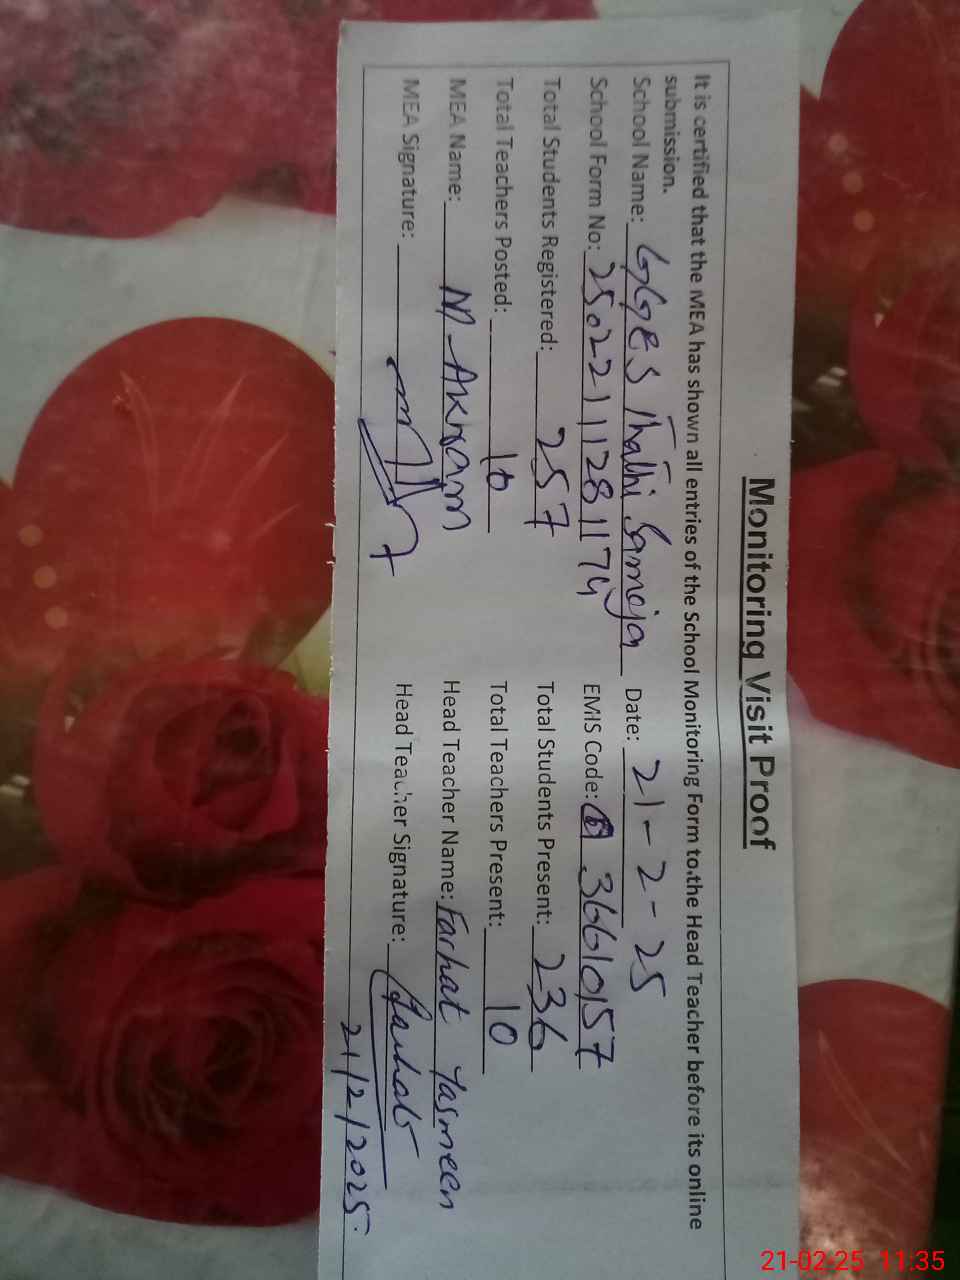 Monitoring Visit Proof
It is certified that the MEA has shown all entries of the School Monitoring Form to the Head Teacher before its online
submission.
School Name: GGES Thathi Sameja Date: 21-2-25
School Form No: 25022111281174 EMIS Code: 36610157
Total Students Registered: 257 Total Students Present: 236
Total Teachers Posted: 10 Total Teachers Present: 10
MEA Name: M-Akram Head Teacher Name: Farhat Yasmeen
MEA Signature: Head Teacher Signature: Farhat
21/2/2025
21-02-25 11:35